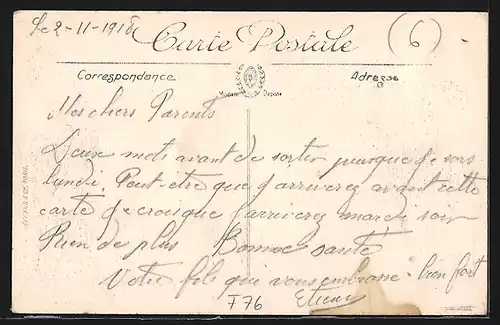 Le 2-11-1918
(6)
Carte Postale
Correspondance
Adresse
Modèle Déposé
Mes chers Parents
Deux mots avant de sortir puisque je sors
lundi. Peut-etre que j'arriverez avant cette
carte je crois que j'arriverez mardi soir
Rien de plus Bonne santé
Votre fils que vous embrasse bien fort
Etienne
F76